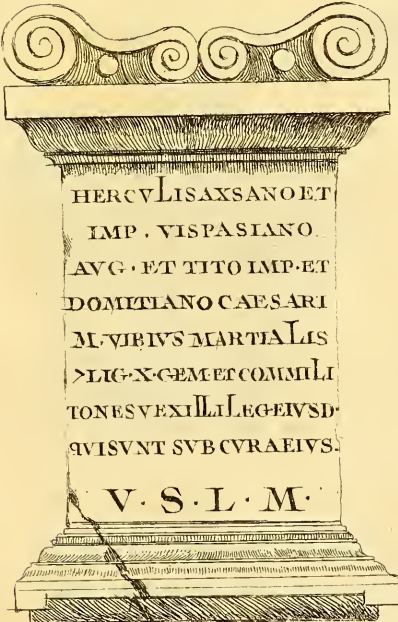 HERCVLISAXSANOET
IMP . VISPASIANO
AVG · ET TITO IMP · ET
DOMITIANO CAESARI
M · VIBIVS MARTIALIS
>LIG · X · GEM · ET COMMILI
TONES VEXILLI LEG · EIVSD ·
QVI SVNT SVB CVRA EIVS ·
V · S · L · M ·